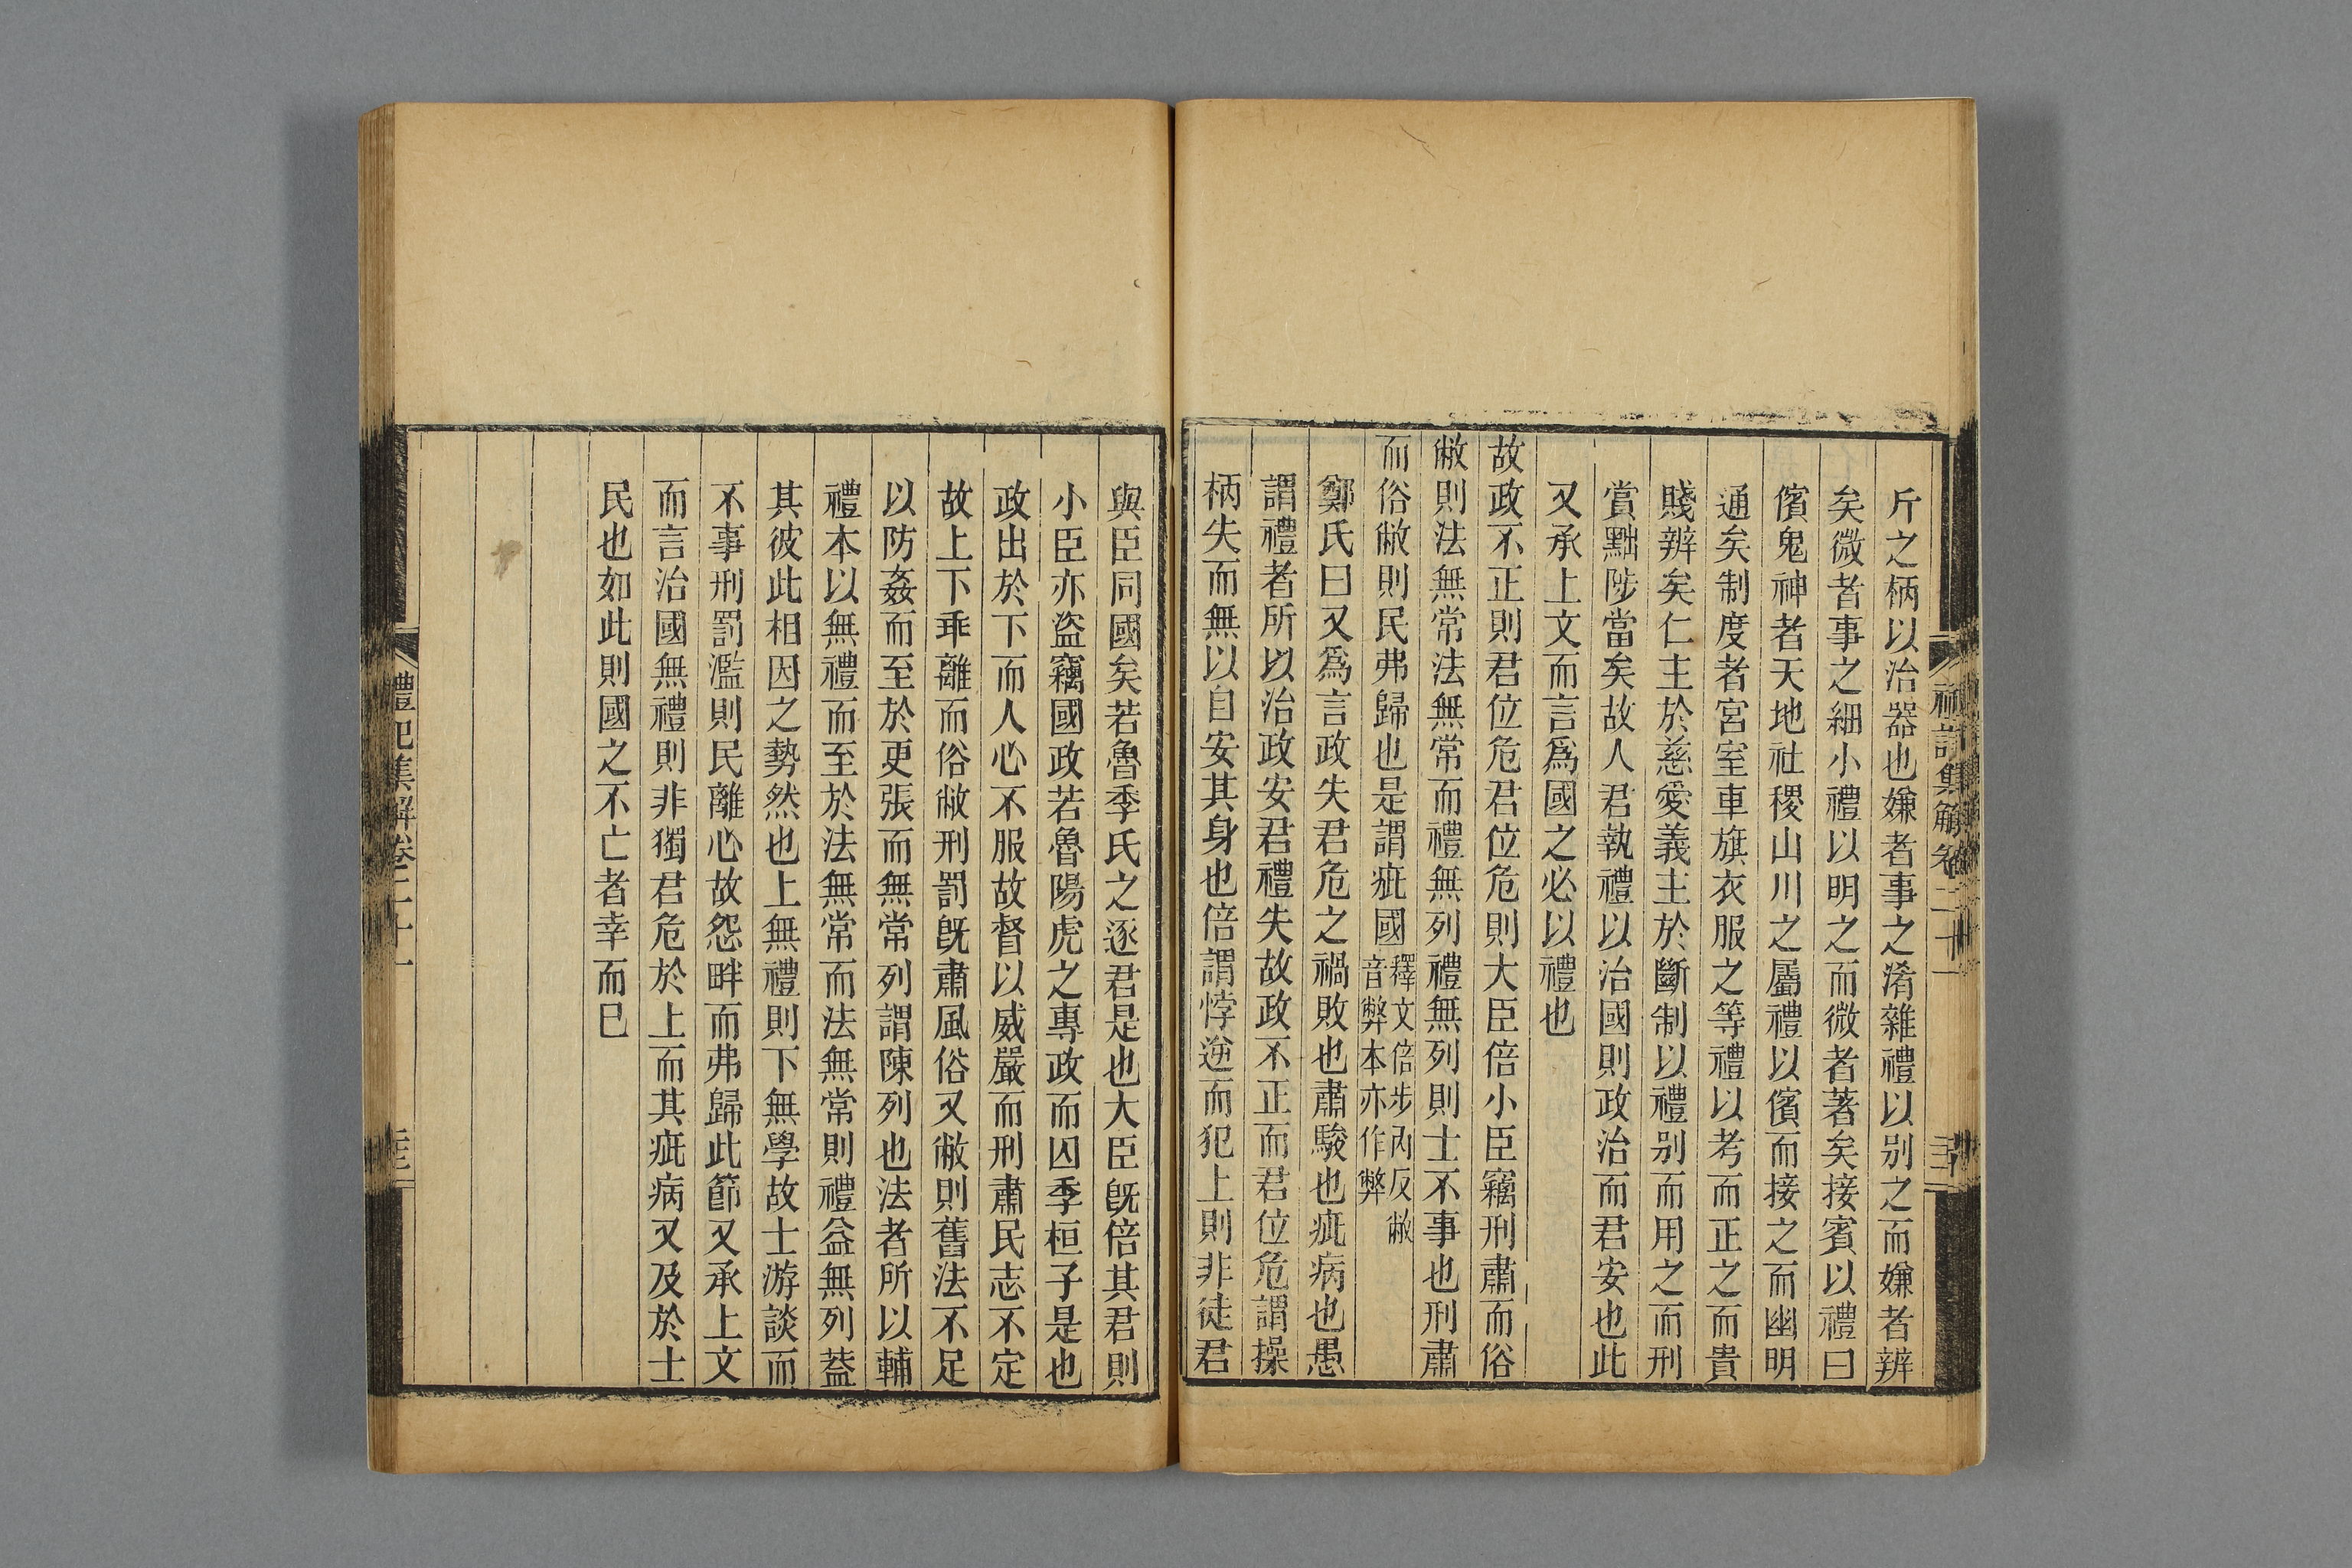 斤之柄以治器也嫌者事之淆雜禮以别之而嫌者辨
矣微者事之細小禮以明之而微者著矣接賓以禮曰
儐鬼神者天地社稷山川之屬禮以儐而接之而幽明
通矣制度者宮室車旗衣服之等禮以考而正之而貴
賤辨矣仁主於慈愛義主於斷制以禮别而用之而刑
賞黜陟當矣故人君執禮以治國則政治而君安也此
又承上文而言爲國之必以禮也
故政不正則君位危君位危則大臣倍小臣竊刑肅而俗
敝則法無常法無常而禮無列禮無列則士不事也刑肅
而俗敝則民弗歸也是謂疵國
釋文倍步內反敝
音弊本亦作弊
鄭氏曰又爲言政失君危之禍敗也肅駿也疵病也愚
謂禮者所以治政安君禮失故政不正而君位危謂操
柄失而無以自安其身也倍謂悖逆而犯上則非徒君
與臣同國矣若魯季氏之逐君是也大臣旣倍其君則
小臣亦盜竊國政若魯陽虎之專政而囚季桓子是也
政出於下而人心不服故督以威嚴而刑肅民志不定
故上下乖離而俗敝刑罰旣肅風俗又敝則舊法不足
以防姦而至於更張而無常列謂陳列也法者所以輔
禮本以無禮而至於法無常而法無常則禮益無列葢
其彼此相因之勢然也上無禮則下無學故士游談而
不事刑罰濫則民離心故怨畔而弗歸此節又承上文
而言治國無禮則非獨君危於上而其疵病又及於士
民也如此則國之不亡者幸而巳
禮記集解卷二十一